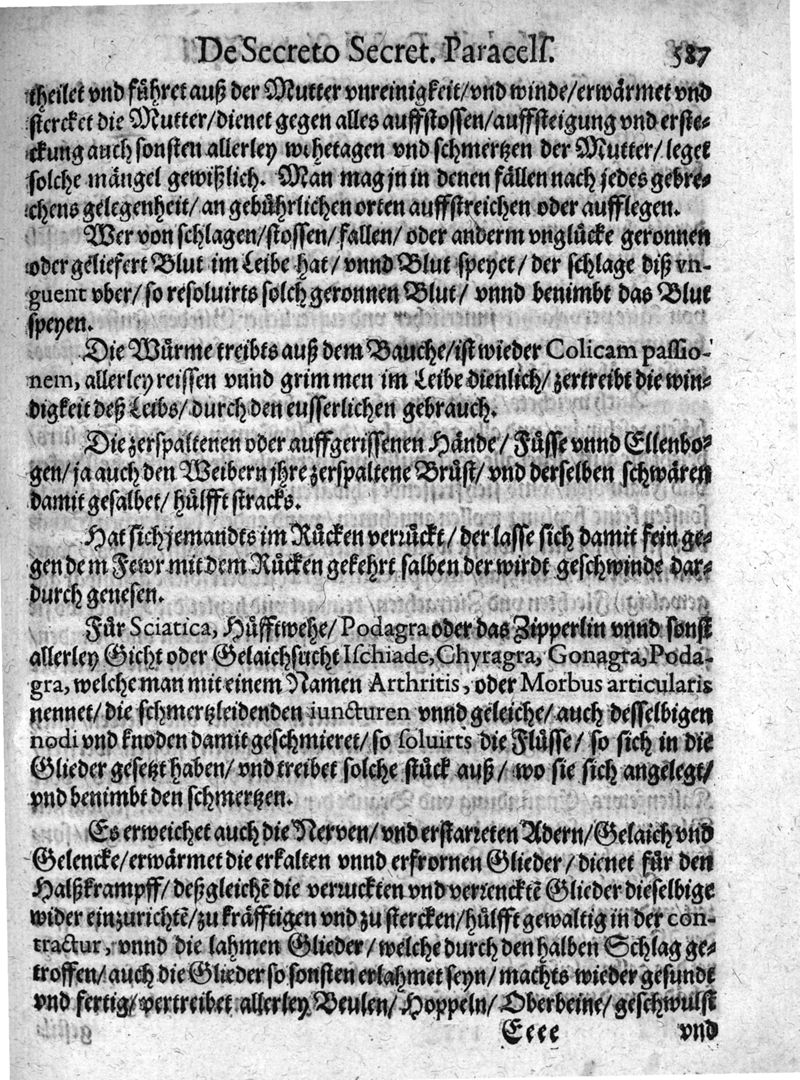 De Secreto Secret. Paracelſ. 587
theilet vnd führet auß der Mutter vnreinigkeit/ vnd winde/ erwärmet vnd
stercket die Mutter/ dienet gegen alles auffstossen/ auffsteigung vnd erste-
ckung auch sonsten allerley wehetagen vnd schmertzen der Mutter/ leget
solche mängel gewißlich. Man mag jn in denen fällen nach jedes gebre-
chens gelegenheit/ an gebührlichen orten auffstreichen oder aufflegen.
Wer von schlagen/ stossen/ fallen/ oder anderm vnglücke geronnen
oder geliefert Blut im Leibe hat/ vnnd Blut speyet/ der schlage diß vn-
guent vber/ so resoluirts solch geronnen Blut/ vnnd benimbt das Blut
speyen.
Die Würme treibts auß dem Bauche/ ist wieder Colicam passio-
nem, allerley reissen vnnd grimmen im Leibe dienlich/ zertreibt die win-
digkeit deß Leibs/ durch den eusserlichen gebrauch.
Die zerspaltenen oder auffgerissenen Hände/ Füsse vnnd Ellenbo-
gen/ ja auch den Weibern jhre zerspaltene Brüst/ vnd derselben schwären
damit gesalbet/ hülfft stracks.
Hat sich jemandts im Rücken verrückt/ der lasse sich damit fein ge-
gen dem Fewr mit dem Rücken gekehrt salben der wirdt geschwinde dar-
durch genesen.
Für Sciatica, Hüfftwehe/ Podagra oder das Zipperlin vnnd sonst
allerley Gicht oder Gelaichsucht Ischiade, Chyragra, Gonagra, Poda-
gra, welche man mit einem Namen Arthritis, oder Morbus articularis
nennet/ die schmertzleidenden iuncturen vnnd geleiche/ auch desselbigen
nodi vnd knoden damit geschmieret/ so soluirts die Flüsse/ so sich in die
Glieder gesetzt haben/ vnd treibet solche stück auß/ wo sie sich angelegt/
vnd benimbt den schmertzen.
Es erweichet auch die Nerven/ vnd erstarreten Adern/ Gelaich vnd
Gelencke/ erwärmet die erkalten vnnd erfrornen Glieder/ dienet für den
Halßkrampff/ deßgleichē die verruckten vnd verrencktē Glieder dieselbige
wider einzurichtē/ zu kräfftigen vnd zu stercken/ hülfft gewaltig in der con-
tractur, vnnd die lahmen Glieder/ welche durch den halben Schlag ge-
troffen/ auch die Glieder so sonsten erlahmet seyn/ machts wieder gesundt
vnd fertig/ vertreibet allerley Beulen/ Hoppeln/ Oberbeine/ geschwulst
Eeee vnd